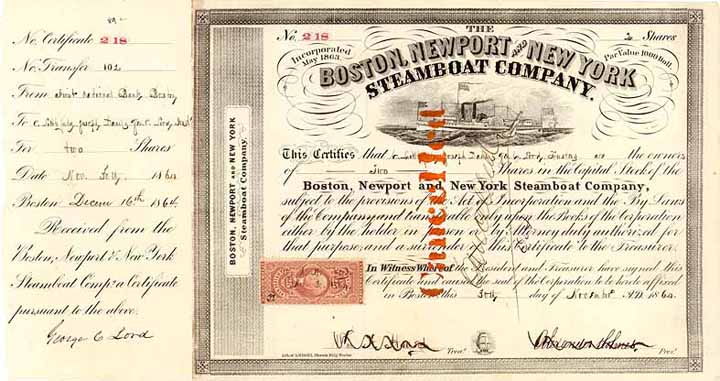 No. Certificate 218
No. Transfer 102
From First National Bank Boston
To
For two Shares
Date Nov. 1864
Boston Decem 16th 1864
Received from the
Boston, Newport & New York
Steamboat Comp: a Certificate
pursuant to the above.
George C Lord
BOSTON, NEWPORT AND NEW YORK
Steamboat Company.
No. 218
THE
2 Shares
Incorporated
May 1863.
Par Value 1000 Doll.
BOSTON, NEWPORT AND NEW YORK
STEAMBOAT COMPANY.
This Certifies that Joseph are the owners
of Two Shares in the Capital Stock of the
Boston, Newport and New York Steamboat Company,
subject to the provisions of the Act of Incorporation and the By Laws
of the Company and transferable only upon the Books of the Corporation
either by the holder in person or by Attorney duly authorized for
that purpose, and a surrender of this Certificate to the Treasurer.
In Witness Whereof the President and Treasurer have signed this
Certificate and caused the seal of the Corporation to be hereto affixed
in Boston, this day of November A.D. 1864
Treasr.
Pres.
Cancelled
Cancelled